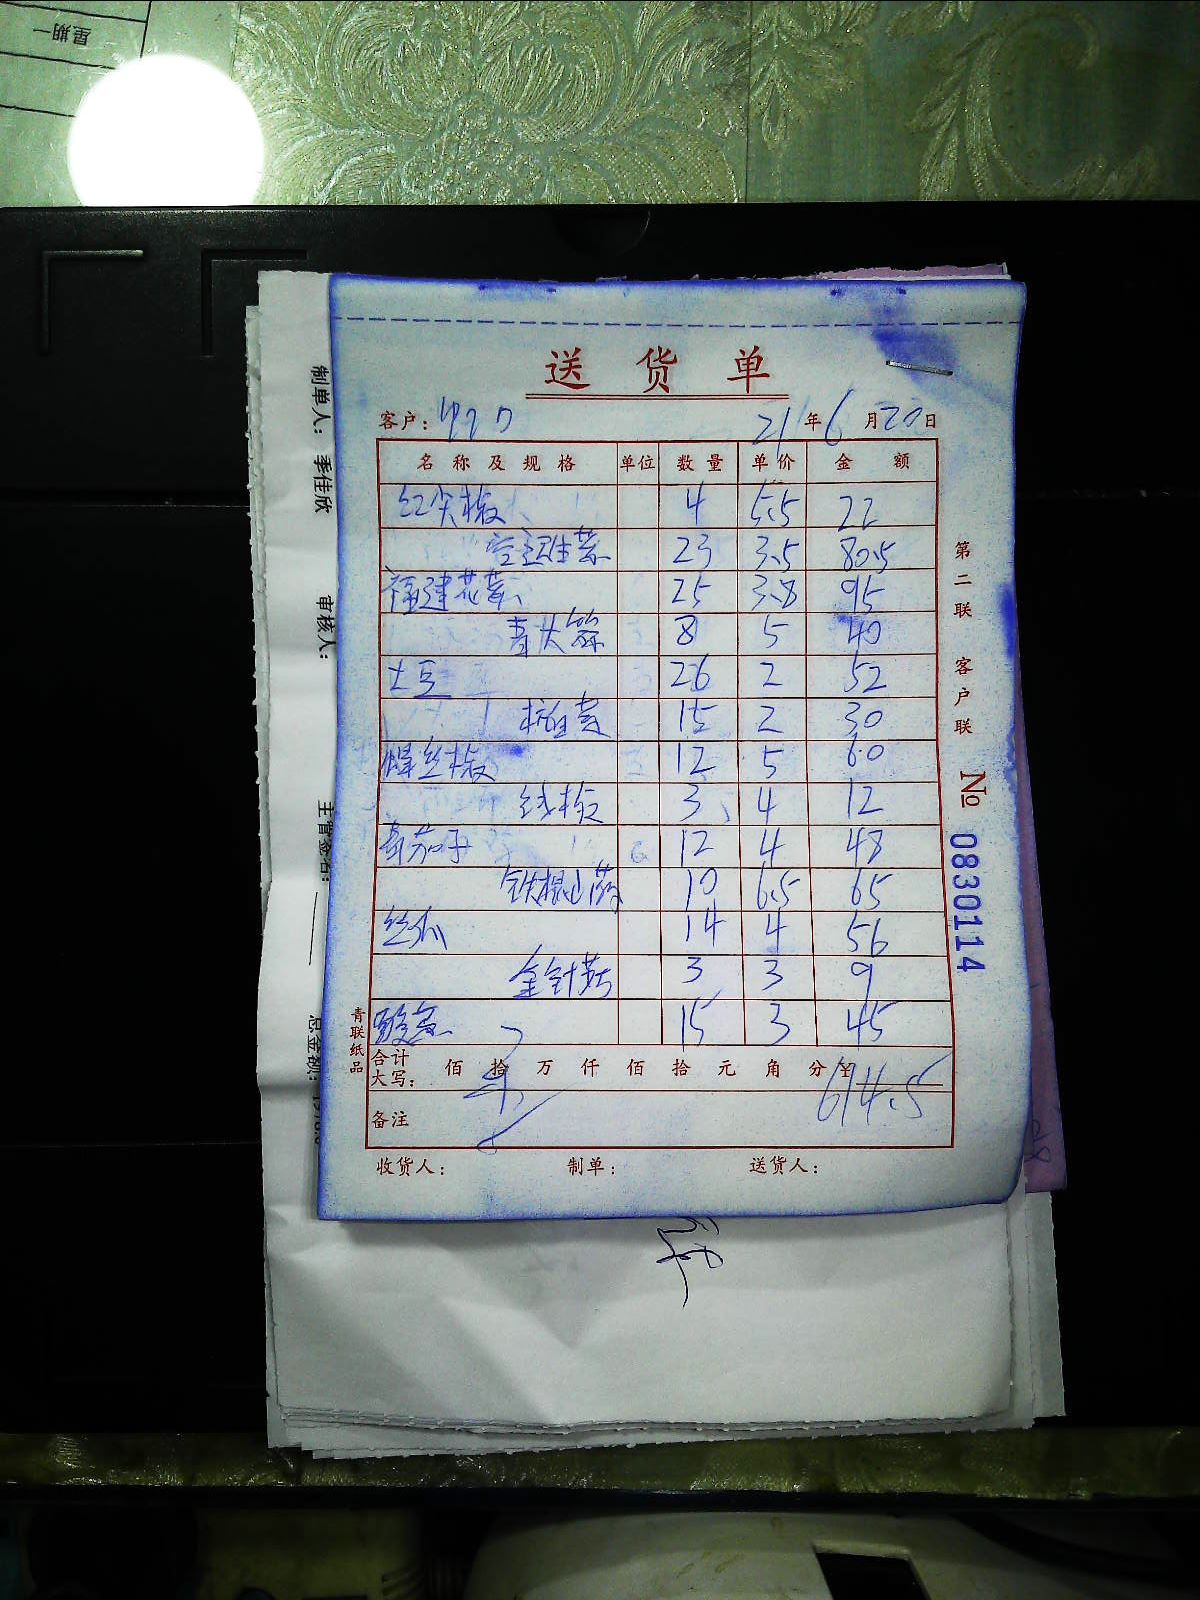 星期一
送货单
客户: 21年6月20日
名称及规格 单位 数量 单价 金额
红尖椒 4 5.5 22
23 3.5 80.5
福建花菜 25 3.8 95
8 5 40
土豆 26 2 52
杭白菜 15 2 30
螺丝椒 12 5 60
线椒 3 4 12
青茄子 12 4 48
铁棍山药 10 6.5 65
丝瓜 14 4 56
金针菇 3 3 9
酸菜 15 3 45
合计大写: 佰拾万仟佰拾元角分 ¥ 614.5
备注
收货人: 制单: 送货人:
第二联 客户联
№ 0830114
青联纸品
制单人: 季佳欣 审核人: 主管签名: 总金额: